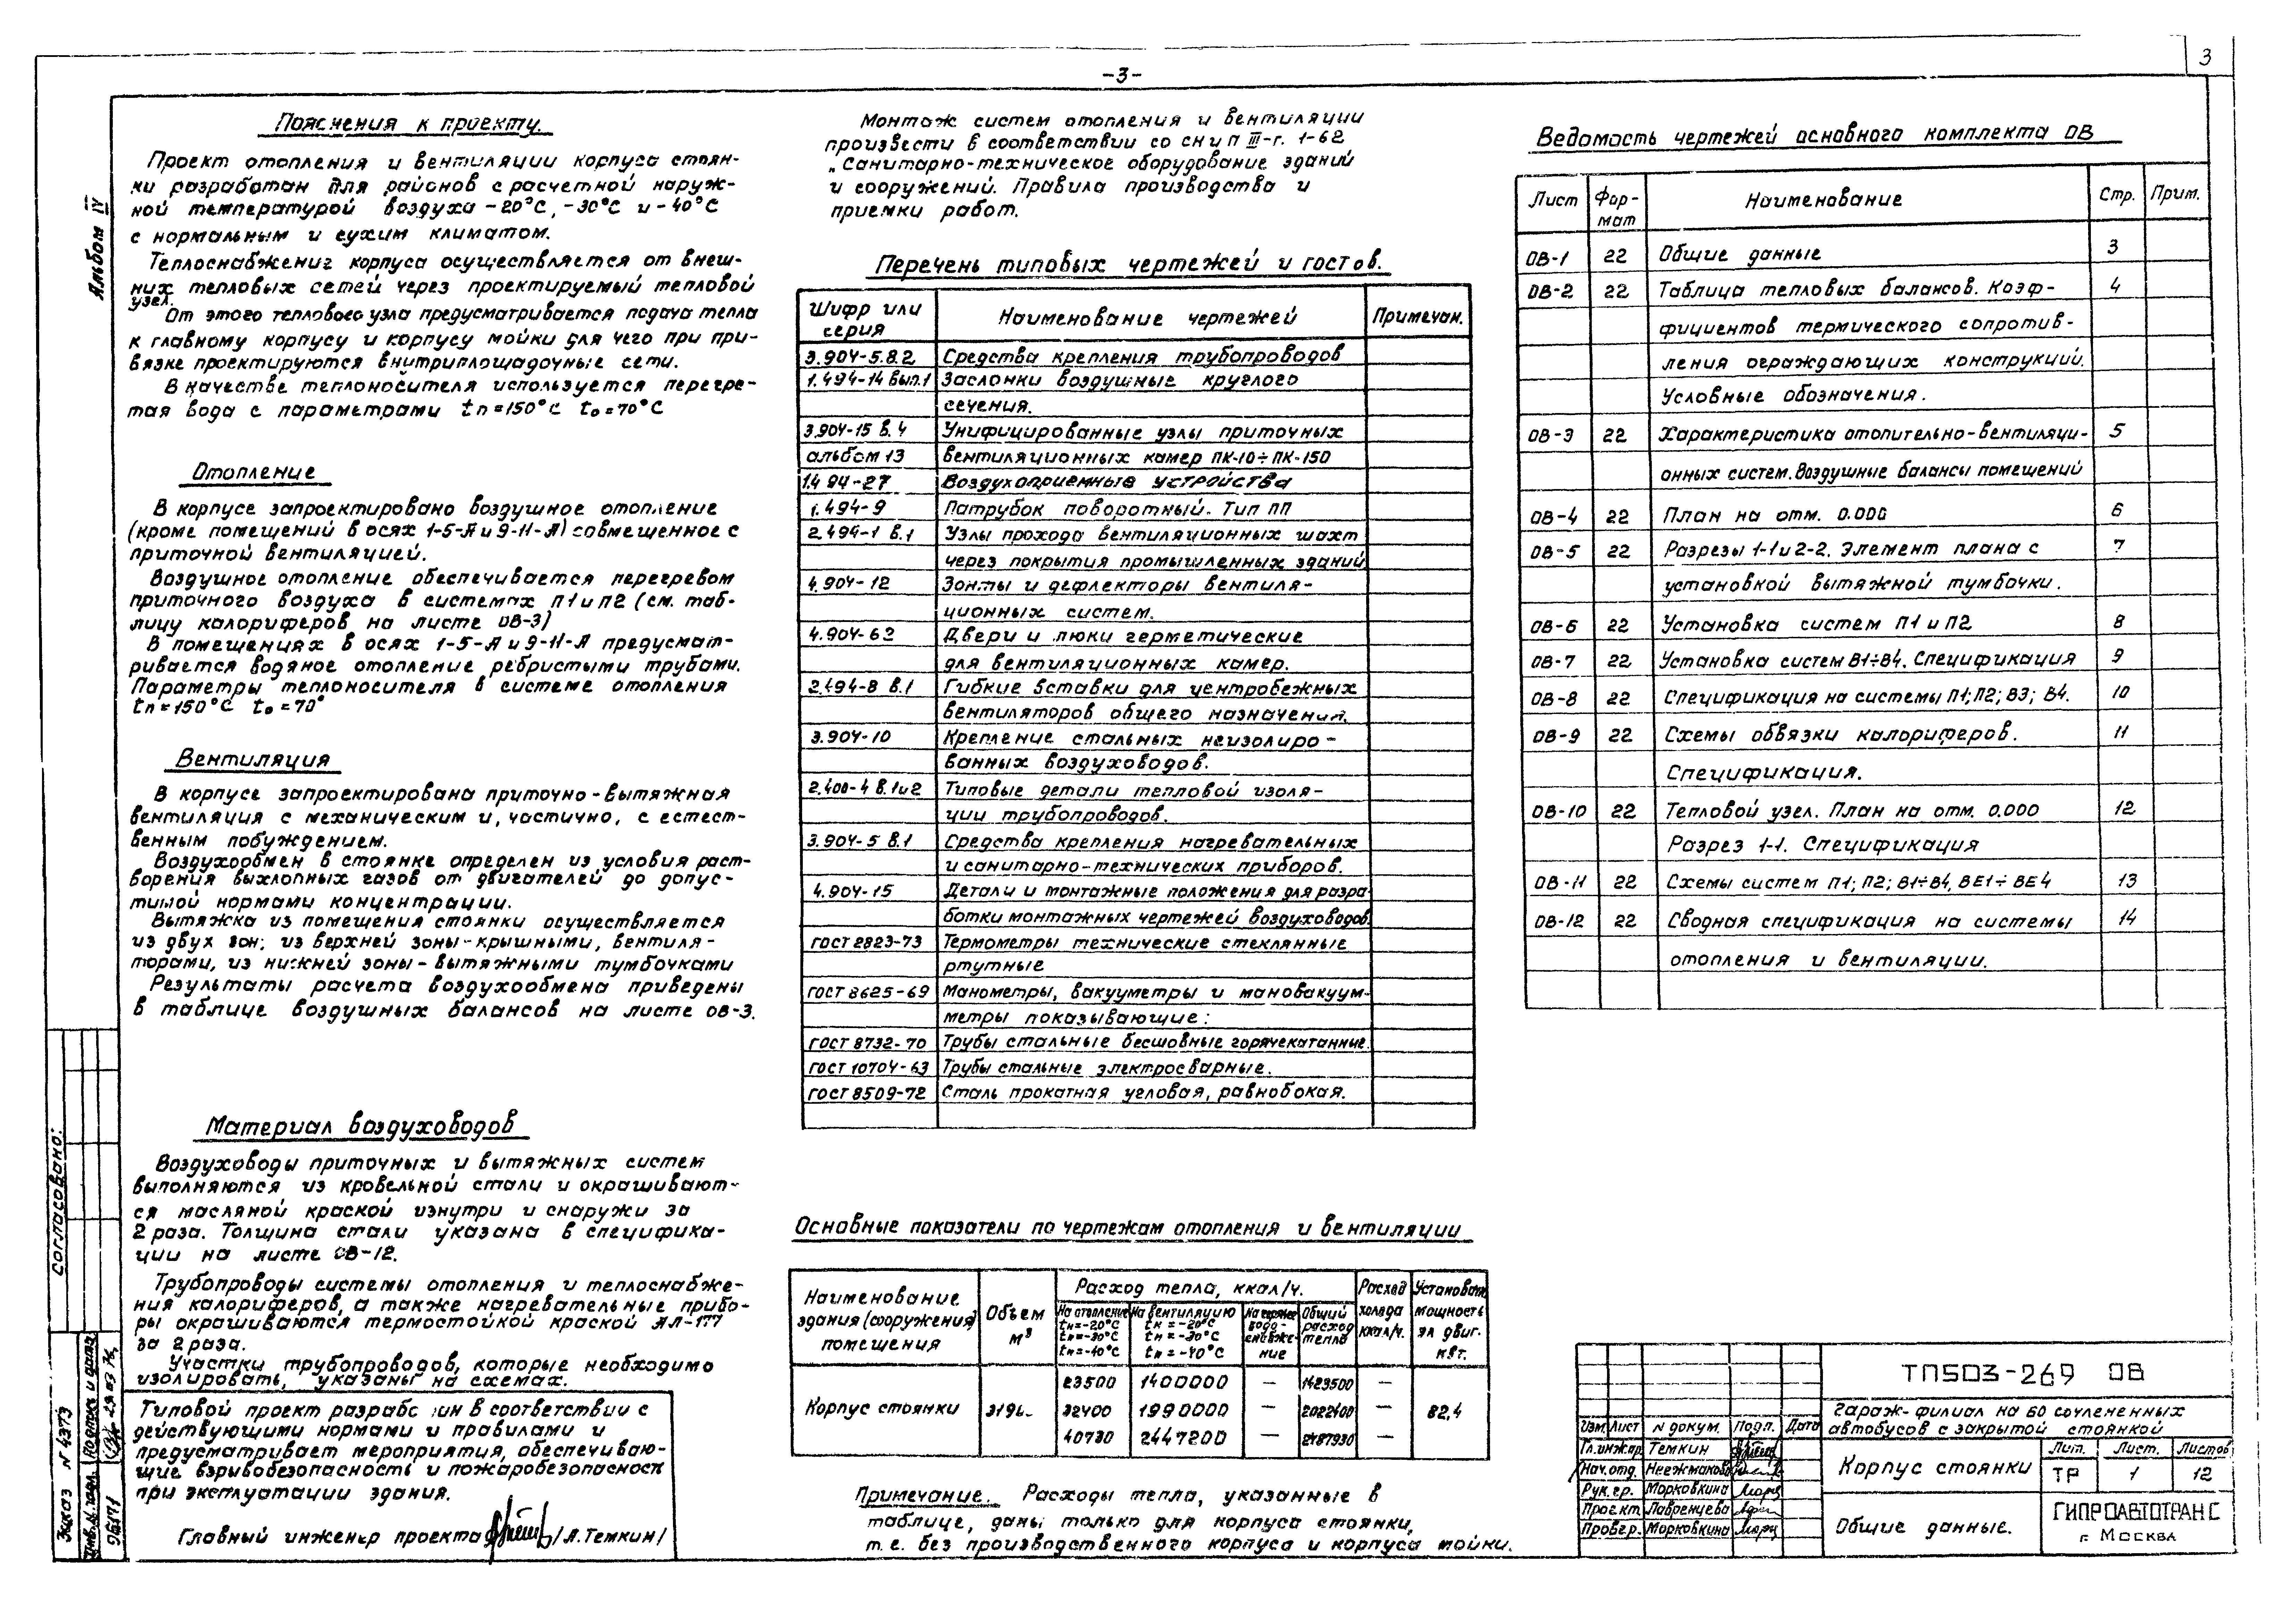 3
-3-
Альбом IV
Пояснения к проекту.
Проект отопления и вентиляции корпуса стоян-
ки разработан для районов с расчетной наруж-
ной температурой воздуха -20°С, -30°С и -40°С
с нормальным и сухим климатом.
Теплоснабжение корпуса осуществляется от внеш-
них тепловых сетей через проектируемый тепловой
узел.
От этого теплового узла предусматривается подача тепла
к главному корпусу и корпусу мойки для чего при при-
вязке проектируются внутриплощадочные сети.
В качестве теплоносителя используется перегре-
тая вода с параметрами tп=150°С tо=70°С
Отопление
В корпусе запроектировано воздушное отопление
(кроме помещений в осях 1-5-А и 9-11-А) совмещенное с
приточной вентиляцией.
Воздушное отопление обеспечивается перегревом
приточного воздуха в системах П1 и П2 (см. таб-
лицу калориферов на листе ОВ-3)
В помещениях в осях 1-5-А и 9-11-А предусмат-
ривается водяное отопление ребристыми трубами.
Параметры теплоносителя в системе отопления
tп=150°С tо=70°
Вентиляция
В корпусе запроектирована приточно-вытяжная
вентиляция с механическим и, частично, с естест-
венным побуждением.
Воздухообмен в стоянке определен из условия раст-
ворения выхлопных газов от двигателей до допус-
тимой нормами концентрации.
Вытяжка из помещения стоянки осуществляется
из двух зон; из верхней зоны-крышными, вентиля-
торами, из нижней зоны-вытяжными тумбочками
Результаты расчета воздухообмена приведены
в таблице воздушных балансов на листе ОВ-3.
Материал воздуховодов
Воздуховоды приточных и вытяжных систем
выполняются из кровельной стали и окрашивают-
ся масляной краской изнутри и снаружи за
2 раза. Толщина стали указана в специфика-
ции на листе ОВ-12.
Трубопроводы системы отопления и теплоснабже-
ния калориферов, а также нагревательные прибо-
ры окрашиваются термостойкой краской АЛ-177
за 2 раза.
Участки трубопроводов, которые необходимо
изолировать, указаны на схемах.
Типовой проект разработан в соответствии с
действующими нормами и правилами и
предусматривает мероприятия, обеспечиваю-
щие взрывобезопасность и пожаробезопасность
при эксплуатации здания.
Главный инженер проекта /Л.Темкин/
Согласовано:
Заказ N 4373
Инв.N.подл. Подпись и дата
96171
Монтаж систем отопления и вентиляции
произвести в соответствии со СНиП III-Г. 1-62
„Санитарно-техническое оборудование зданий
и сооружений. Правила производства и
приемки работ.
Перечень типовых чертежей и гостов.
Шифр или серия Наименование чертежей Примечан.
3.904-5.8.2 Средства крепления трубопроводов
1.494-14 вып.1 Заслонки воздушные круглого
сечения.
3.904-15 в.4 Унифицированные узлы приточных
альбом 13 вентиляционных камер ПК-10÷ПК-150
1.494-27 Воздухоприемные устройства
1.494-9 Патрубок поворотный. Тип ПП
2.494-1 в.1 Узлы прохода вентиляционных шахт
через покрытия промышленных зданий
4.904-12 Зонты и дефлекторы вентиля-
ционных систем.
4.904-62 Двери и люки герметические
для вентиляционных камер.
2.494-8 в.1 Гибкие вставки для центробежных
вентиляторов общего назначения.
3.904-10 Крепление стальных неизолиро-
ванных воздуховодов.
2.400-4 в.1и2 Типовые детали тепловой изоля-
ции трубопроводов.
3.904-5 в.1 Средства крепления нагревательных
и санитарно-технических приборов.
4.904-15 Детали и монтажные положения для разра-
ботки монтажных чертежей воздуховодов
ГОСТ 2823-73 Термометры технические стеклянные
ртутные
ГОСТ 8625-69 Манометры, вакууметры и мановакуум-
метры показывающие:
ГОСТ 8732-70 Трубы стальные бесшовные горячекатанные.
ГОСТ 10704-63 Трубы стальные электросварные.
ГОСТ 8509-72 Сталь прокатная угловая, равнобокая.
Основные показатели по чертежам отопления и вентиляции
Наименование здания (сооружения) помещения Объем м³ Расход тепла, ккал/ч. Расход холода ккал/ч. Установ. мощность эл двиг. квт.
На отопление tн=-20°С tн=-30°С tн=-40°С На вентиляцию tн=-20°С tн=-30°С tн=-40°С На горячее водоснабжение Общий расход тепла
23500 1400000 — 1423500 —
Корпус стоянки 32400 1990000 — 2022400 — 82,4
40730 2447200 — 2487930 —
Примечание. Расходы тепла, указанные в
таблице, даны только для корпуса стоянки,
т.е. без производственного корпуса и корпуса мойки.
Ведомость чертежей основного комплекта ОВ
Лист Фор-мат Наименование Стр. Прим.
ОВ-1 22 Общие данные 3
ОВ-2 22 Таблица тепловых балансов. Коэф- 4
фициентов термического сопротив-
ления ограждающих конструкций.
Условные обозначения.
ОВ-3 22 Характеристика отопительно-вентиляци- 5
онных систем. Воздушные балансы помещений
ОВ-4 22 План на отм. 0.000 6
ОВ-5 22 Разрезы 1-1 и 2-2. Элемент плана с 7
установкой вытяжной тумбочки.
ОВ-6 22 Установка систем П1 и П2 8
ОВ-7 22 Установка систем В1÷В4. Спецификация 9
ОВ-8 22 Спецификация на системы П1; П2; В3; В4. 10
ОВ-9 22 Схемы обвязки калориферов. 11
Спецификация.
ОВ-10 22 Тепловой узел. План на отм. 0.000 12
Разрез 1-1. Спецификация
ОВ-11 22 Схемы систем П1; П2; В1÷В4, ВЕ1÷ВЕ4 13
ОВ-12 22 Сводная спецификация на системы 14
отопления и вентиляции.
ТП503-269 ОВ
Гараж-филиал на 60 сочлененных
автобусов с закрытой стоянкой
Изм Лист N докум. Подп. Дата
Гл.инжпр Темкин
Нач.отд.
Рук.гр. Морковкина
Проект. Лавренцева
Провер. Морковкина
Корпус стоянки
Лит. Лист. Листов
ТР 1 12
Общие данные.
ГИПРОАВТОТРАНС
г. Москва